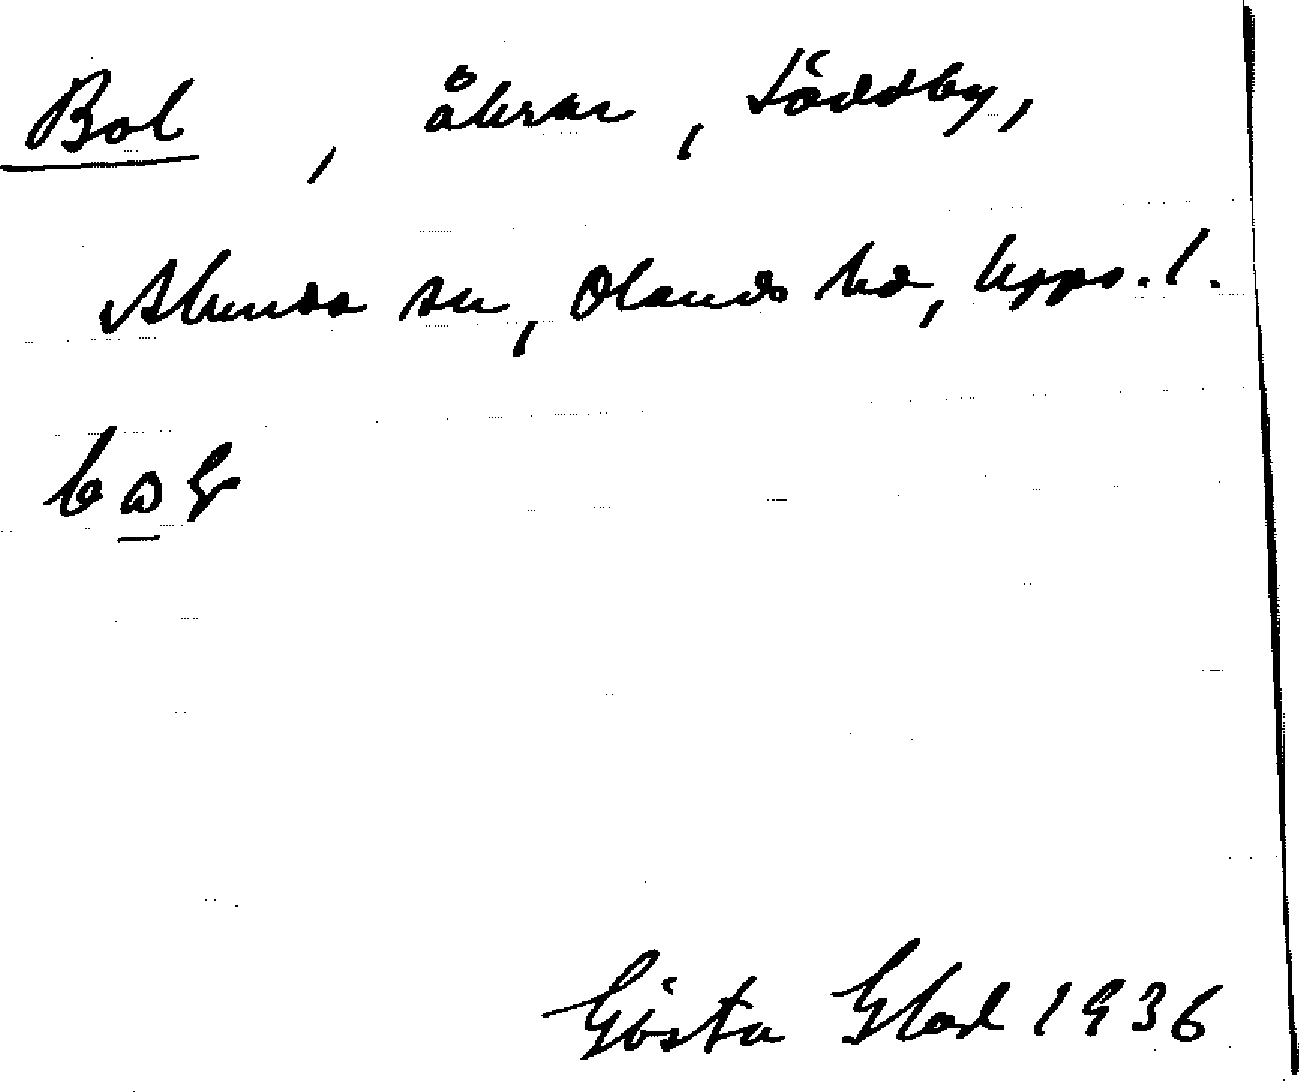 Bol, åkrar, Söddby,
Alunda sn, Olands hd, Upps. l.
Gösta Glad 1936